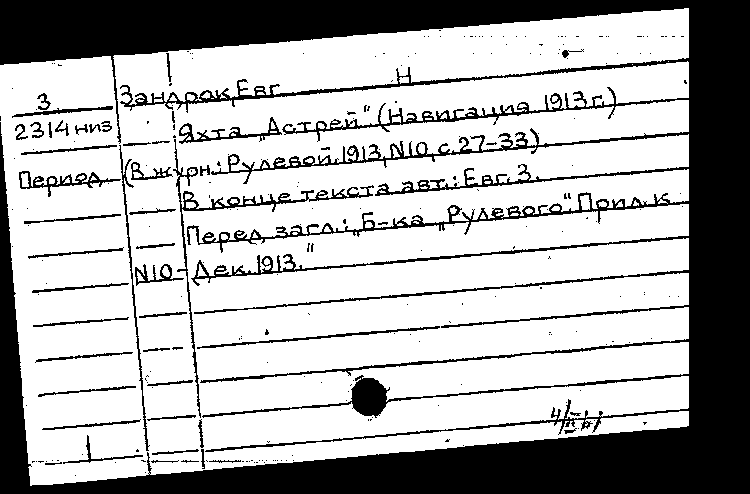 Н
3 Зандрок, Евг.
2314 низ Яхта „Астрей" (Навигация 1913 г.)
Период. (В журн.: Рулевой. 1913, N10, с. 27-33).
В конце текста авт.: Евг. З.
Перед загл.: „Б-ка „Рулевого". Прил. к
N10 - Дек. 1913."